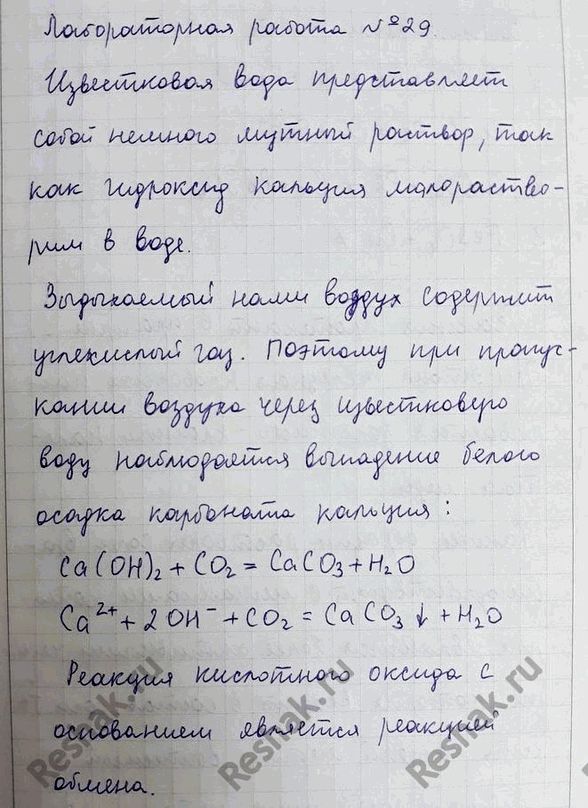 Лабораторная работа №29.
Известковая вода представляет
собой немного мутный раствор, так
как гидроксид кальция малораство-
рим в воде.
Выдыхаемый нами воздух содержит
углекислый газ. Поэтому при пропус-
кании воздуха через известковую
воду наблюдается выпадение белого
осадка карбоната кальция:
Ca(OH)₂ + CO₂ = CaCO₃ + H₂O
Ca²⁺ + 2OH⁻ + CO₂ = CaCO₃↓ + H₂O
Реакция кислотного оксида с
основанием является реакцией
обмена.
Reshak.ru
Reshak.ru
Reshak.ru